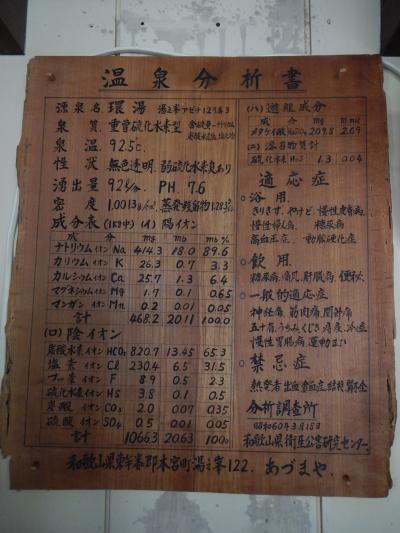 温泉分析書
源泉名 環湯
泉質 重曹硫化水素型
泉温 92.5℃
性状 無色透明 弱硫化水素臭あり
湧出量 92ℓ/分 PH 7.6
密度 1.0013g/㎤
成分表(1kg中)(イ)陽イオン
成分 mg mb mb%
ナトリウムイオン Na 414.3 18.0 89.6
カリウムイオン K 26.3 0.7 3.3
カルシウムイオン Ca 25.7 1.3 6.4
マグネシウムイオン Mg 1.7 0.1 0.65
マンガンイオン Mn 0.2 0.01 0.05
計 468.2 20.11 100.0
(ロ)陰イオン
炭酸水素イオン HCO₃ 820.7 13.45 65.3
塩素イオン Cl 230.4 6.5 31.5
フッ素イオン F 8.9 0.5 2.3
硫化水素イオン HS 3.8 0.1 0.5
炭酸イオン CO₃ 2.0 0.07 0.35
硫酸イオン SO₄ 0.5 0.01 0.05
計 1066.3 20.63 100.0
(ハ)遊離成分
成分 mg
メタケイ酸 209.8 2.69
硫化水素 H₂S 1.3 0.04
適応症
○浴用
きりきず、やけど、慢性皮膚病
慢性婦人病、糖尿病
高血圧症、動脈硬化症
○飲用
糖尿病、痛風、肝臓病、便秘
○一般的適応症
神経痛 筋肉痛 関節痛
五十肩、うちみ、くじき、冷症
慢性胃腸病、運動まひ
○禁忌症
分析調査所
昭和60年3月18日
和歌山県衛生公害研究センター
和歌山県東牟婁郡本宮町湯之峯122. あづまや.